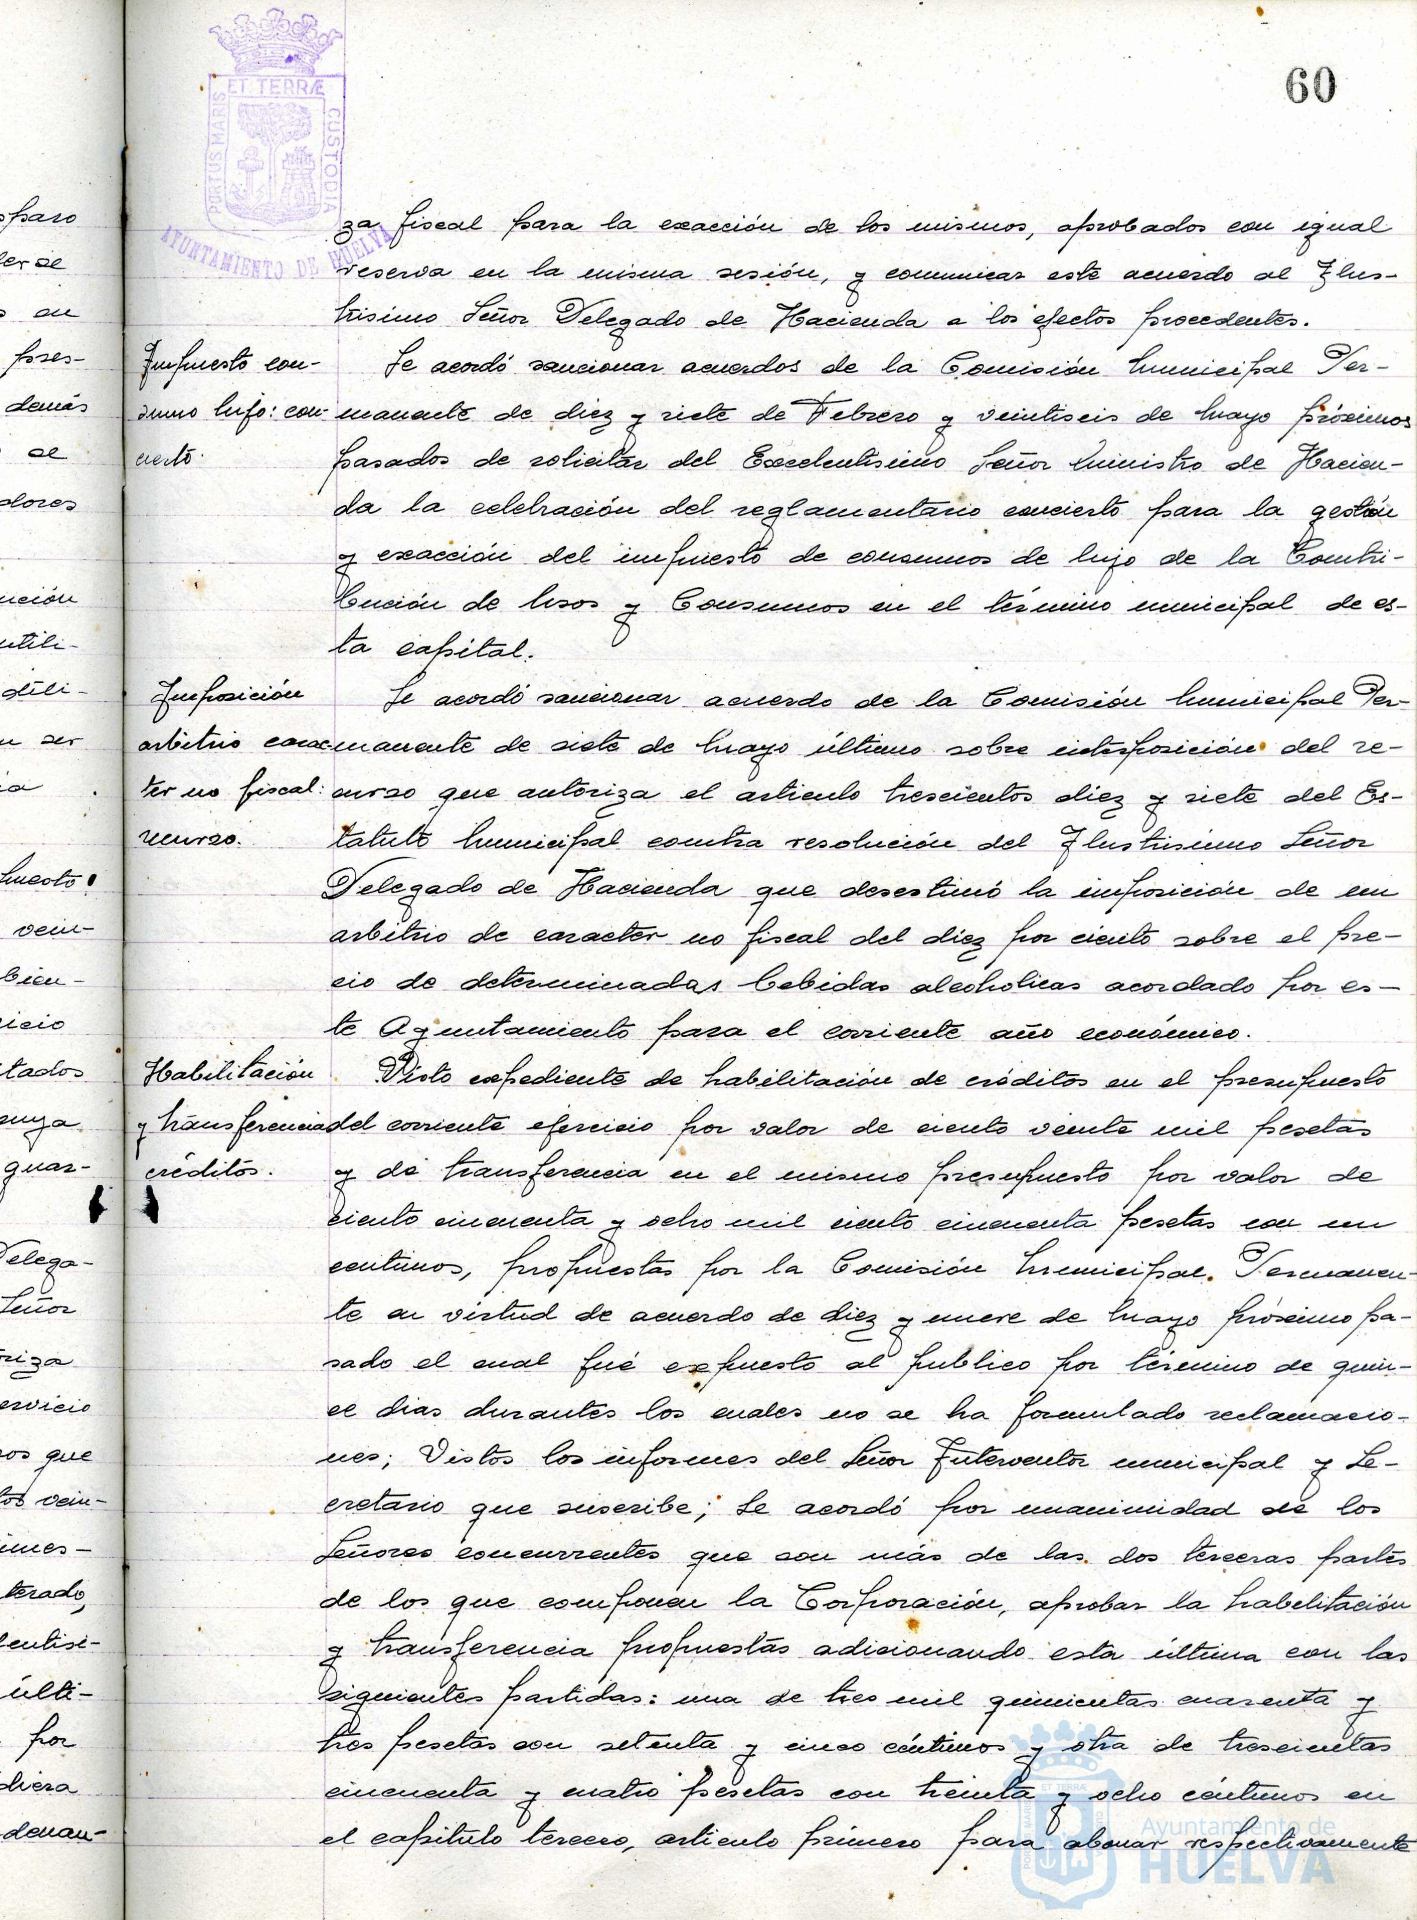 60
ET TERRÆ
PORTUS MARIS
CUSTODIA
AYUNTAMIENTO DE HUELVA
za fiscal para la exacción de los mismos, aprobados con igual
reserva en la misma sesión, y comunicar este acuerdo al Ilus-
trisimo Señor Delegado de Hacienda a los efectos procedentes.
Impuesto con-
sumo lujo: con-
cierto.
Se acordó sancionar acuerdos de la Comisión Municipal Per-
manente de diez y siete de Febrero y veintiseis de Mayo próximos
pasados de solicitar del Excelentisimo Señor Ministro de Hacien-
da la celebración del reglamentario concierto para la gestión
y exacción del impuesto de consumos de lujo de la Contri-
bución de Usos y Consumos en el término municipal de es-
ta capital.
Imposición
arbitrio carac-
ter no fiscal:
recurso.
Se acordó sancionar acuerdo de la Comisión Municipal Per-
manente de siete de Mayo último sobre interposición del re-
curso que autoriza el articulo trescientos diez y siete del Es-
tatuto Municipal contra resolución del Ilustrisimo Señor
Delegado de Hacienda que desestimó la imposición de un
arbitrio de caracter no fiscal del diez por ciento sobre el pre-
cio de determinadas bebidas alcoholicas acordado por es-
te Ayuntamiento para el corriente año económico.
Habilitación
y transferencia
créditos.
Visto expediente de habilitación de créditos en el presupuesto
del corriente ejercicio por valor de ciento veinte mil pesetas
y de transferencia en el mismo presupuesto por valor de
ciento cincuenta y ocho mil ciento cincuenta pesetas con un
centimos, propuestas por la Comisión Municipal Permanen-
te en virtud de acuerdo de diez y nueve de Mayo próximo pa-
sado el cual fué expuesto al publico por término de quin-
ce dias durantes los cuales no se ha formulado reclamacio-
nes; Vistos los informes del Señor Interventor municipal y Se-
cretario que suscribe; Se acordó por unanimidad de los
Señores concurrentes que son más de las dos terceras partes
de los que componen la Corporación, aprobar la habilitación
y transferencia propuestas adicionando esta última con las
siguientes partidas: una de tres mil quinientas cuarenta y
tres pesetas con setenta y cinco céntimos y otra de trescientas
cincuenta y cuatro pesetas con treinta y ocho céntimos en
el capitulo tercero, articulo primero para abonar respectivamente
Ayuntamiento de
HUELVA
sparo
pres-
demás
al
dores
Señor
ervicio
por